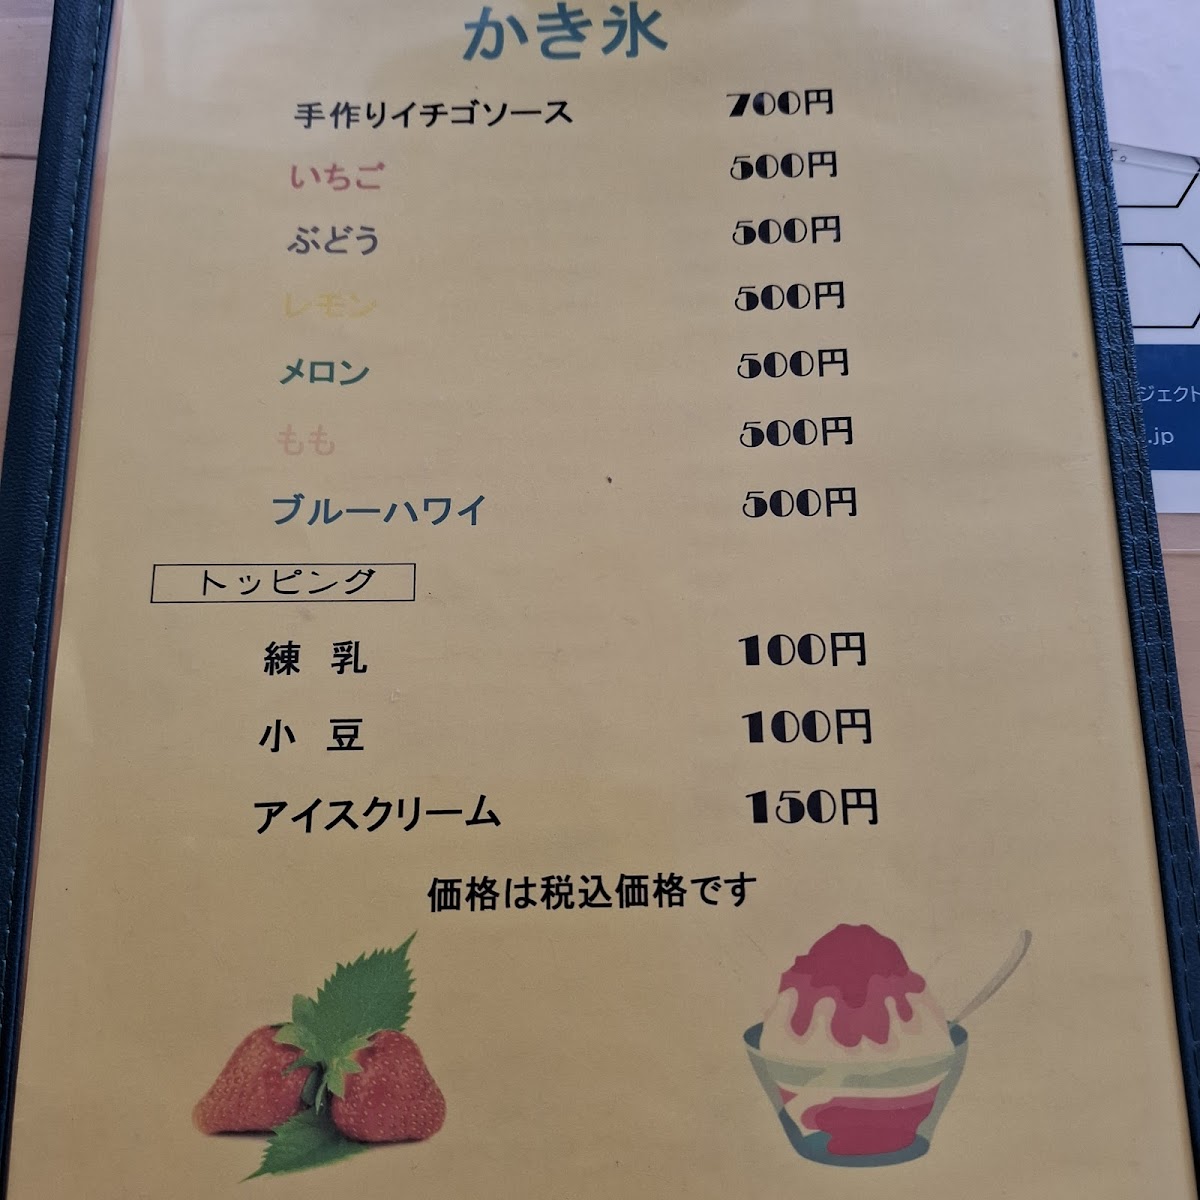 かき氷
手作りイチゴソース 700円
いちご 500円
ぶどう 500円
レモン 500円
メロン 500円
もも 500円
ブルーハワイ 500円
トッピング
練 乳 100円
小 豆 100円
アイスクリーム 150円
価格は税込価格です
ジェクト
.jp